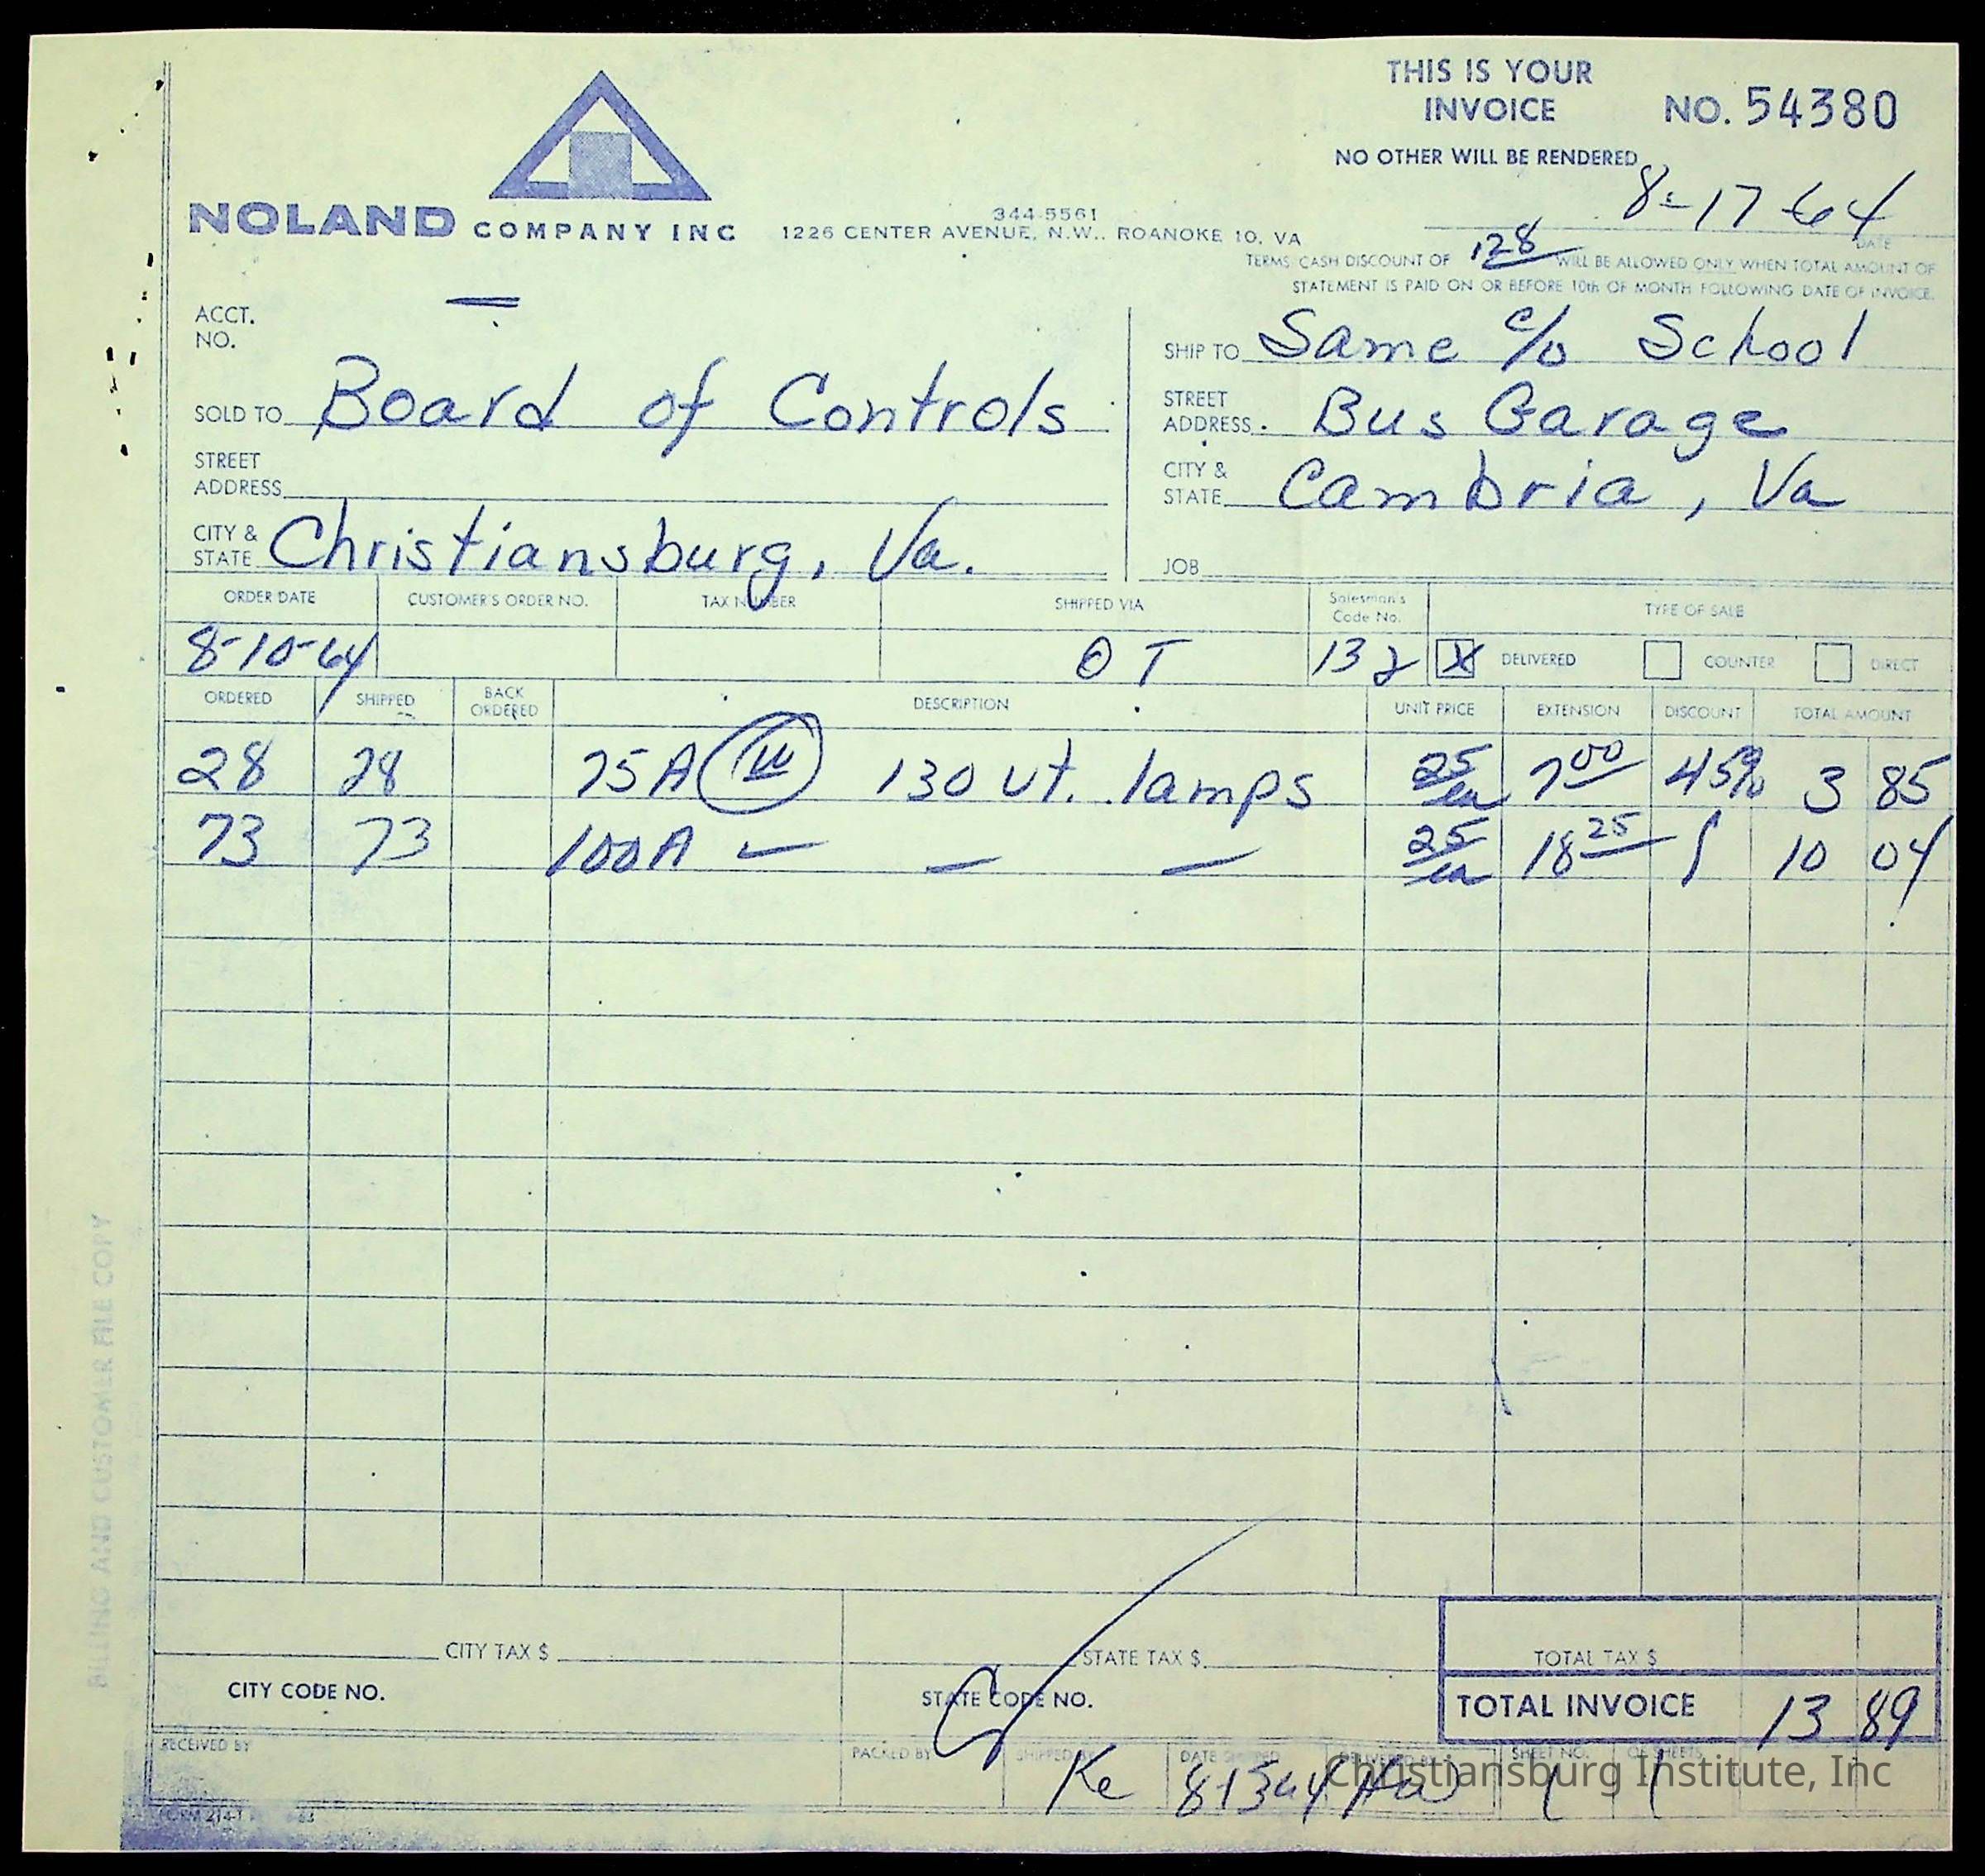 THIS IS YOUR
INVOICE NO. 54380
NO OTHER WILL BE RENDERED
8-17-64
DATE
NOLAND COMPANY INC
344-5561
1226 CENTER AVENUE, N.W., ROANOKE 10, VA
TERMS CASH DISCOUNT OF .128 WILL BE ALLOWED ONLY WHEN TOTAL AMOUNT OF
STATEMENT IS PAID ON OR BEFORE 10th OF MONTH FOLLOWING DATE OF INVOICE.
ACCT.
NO.
SOLD TO Board of Controls
STREET
ADDRESS
CITY &
STATE Christiansburg, Va.
SHIP TO Same c/o School
STREET
ADDRESS Bus Garage
CITY &
STATE Cambria, Va
JOB
ORDER DATE CUSTOMER'S ORDER NO. TAX NUMBER SHIPPED VIA Salesman's Code No. TYPE OF SALE
8-10-64 O T 132 X DELIVERED COUNTER DIRECT
ORDERED SHIPPED BACK ORDERED DESCRIPTION UNIT PRICE EXTENSION DISCOUNT TOTAL AMOUNT
28 28 75A W 130 vt. lamps 25 ea 7 00 45% 3 85
73 73 100A — — — 25 ea 18 25 10 04
CITY TAX $ STATE TAX $ TOTAL TAX $
CITY CODE NO. STATE CODE NO. TOTAL INVOICE 13 89
RECEIVED BY PACKED BY SHIPPED BY DATE SHIPPED DELIVERED BY SHEET NO. OF SHEETS
Ke 1 1
FORM 214-1
BILLING AND CUSTOMER FILE COPY
Christiansburg Institute, Inc